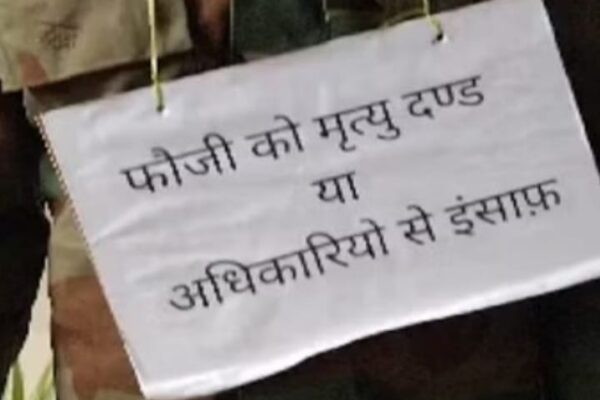 फौजी को मृत्यु दण्ड
या
अधिकारियो से इंसाफ़